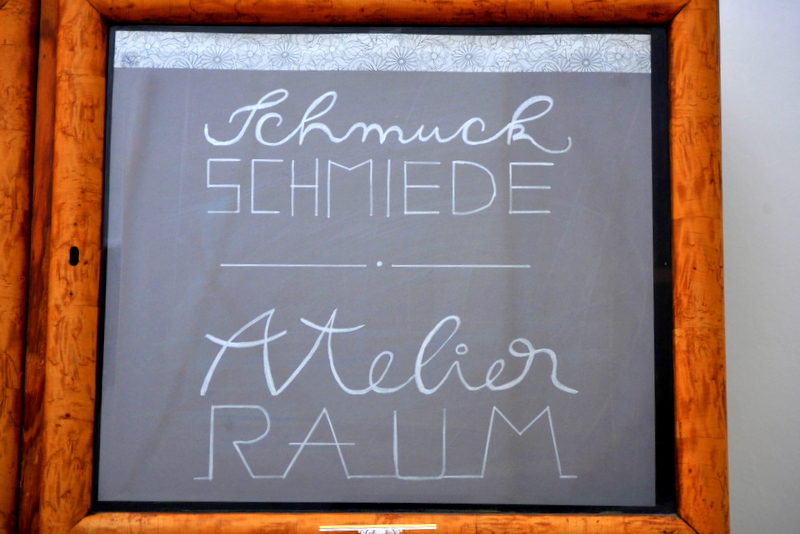 Schmuck
SCHMIEDE
Atelier
RAUM